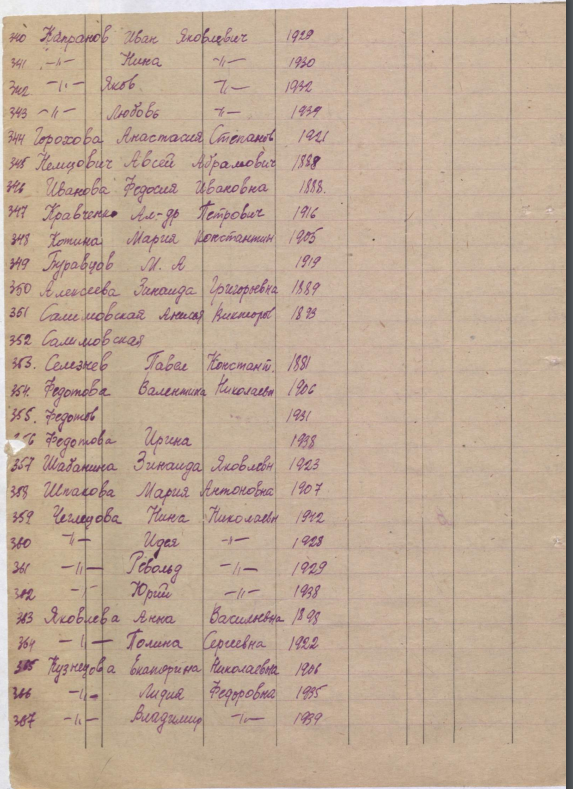 340 Капранов Иван Яковлевич 1929
341 -"- Нина -"- 1930
342 -"- Яков -"- 1932
343 -"- Любовь -"- 1939
344 Горохова Анастасия Степанов 1921
345 Немцович Авсей Абрамович 1888
346 Иванова Федосия Ивановна 1888.
347 Кравченко Ал-др Петрович 1916
348 Котина Мария Константин 1905
349 Буравцов М. А 1919
350 Алексеева Зинаида Григорьевна 1889
351 Салимовская Анисия Викторов 1893
352 Салимовская
353. Селезнев Павел Констант. 1881
354. Федотова Валентина Николаевн 1906
355. Федотов 1931
356 Федотова Ирина 1938
357 Шабанина Зинаида Яковлевн 1923
358 Шпакова Мария Антоновна 1907
359 Чегледова Нина Николаевн 1912
360 -"- Идея -"- 1928
361 -"- Револьд -"- 1929
362 -"- Юрий -"- 1938
363 Яковлева Анна Васильевна 1898
364 -"- Полина Сергеевна 1922
365 Кузнецова Екатерина Николаевна 1906
366 -"- Лидия Федоровна 1935
367 -"- Владимир -"- 1939